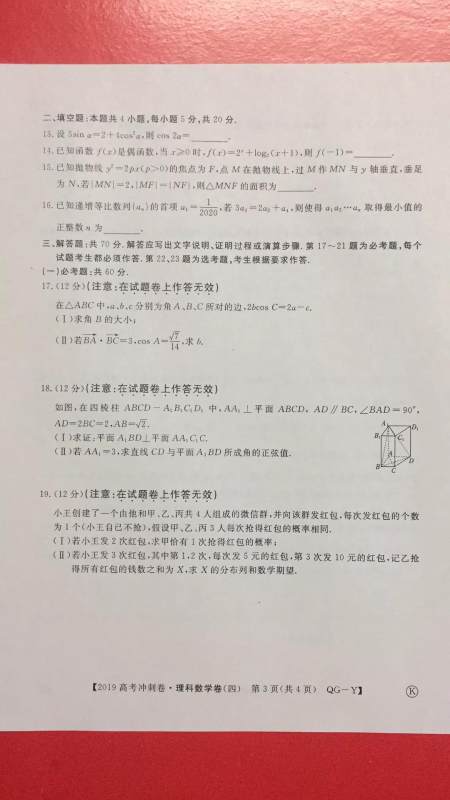 二、填空题:本题共 4 小题,每小题 5 分,共 20 分.
13. 设 5sin α=2+4cos²α,则 cos 2α=________.
14. 已知函数 f(x)是偶函数,当 x≥0 时,f(x)=2ˣ+log₂(x+1),则 f(−1)=________.
15. 已知抛物线 y²=2px(p>0)的焦点为 F,点 M 在抛物线上,过 M 作 MN 与 y 轴垂直,垂足
为 N,若|MN|=2,|MF|=|NF|,则△MNF 的面积为________.
16. 已知递增等比数列{aₙ}的首项 a₁=1/2020,若 3a₃=2a₂+a₄,则使得 a₁a₂⋯aₙ 取得最小值的
正整数 n 为________.
三、解答题:共 70 分.解答应写出文字说明、证明过程或演算步骤.第 17~21 题为必考题,每个
试题考生都必须作答.第 22、23 题为选考题,考生根据要求作答.
(一)必考题:共 60 分.
17. (12 分)(注意:在试题卷上作答无效)
在△ABC 中,a、b、c 分别为角 A、B、C 所对的边,2bcos C=2a−c.
(Ⅰ)求角 B 的大小;
(Ⅱ)若BA·BC=3,cos A=√7/14,求 b.
18. (12 分)(注意:在试题卷上作答无效)
如图,在四棱柱 ABCD−A₁B₁C₁D₁ 中,AA₁⊥平面 ABCD,AD∥BC,∠BAD=90°,
AD=2BC=2,AB=√2.
(Ⅰ)求证:平面 A₁BD⊥平面 AA₁C₁C.
(Ⅱ)若 AA₁=3,求直线 CD 与平面 A₁BD 所成角的正弦值.
A₁ D₁
B₁ C₁
A D
B C
19. (12 分)(注意:在试题卷上作答无效)
小王创建了一个由他和甲、乙、丙共 4 人组成的微信群,并向该群发红包,每次发红包的个数
为 1 个(小王自己不抢),假设甲、乙、丙 3 人每次抢得红包的概率相同.
(Ⅰ)若小王发 2 次红包,求甲恰有 1 次抢得红包的概率;
(Ⅱ)若小王发 3 次红包,其中第 1,2 次,每次发 5 元的红包,第 3 次发 10 元的红包,记乙抢
得所有红包的钱数之和为 X,求 X 的分布列和数学期望.
【2019 高考冲刺卷·理科数学卷(四) 第 3 页(共 4 页) QG−Y】
Ⓚ